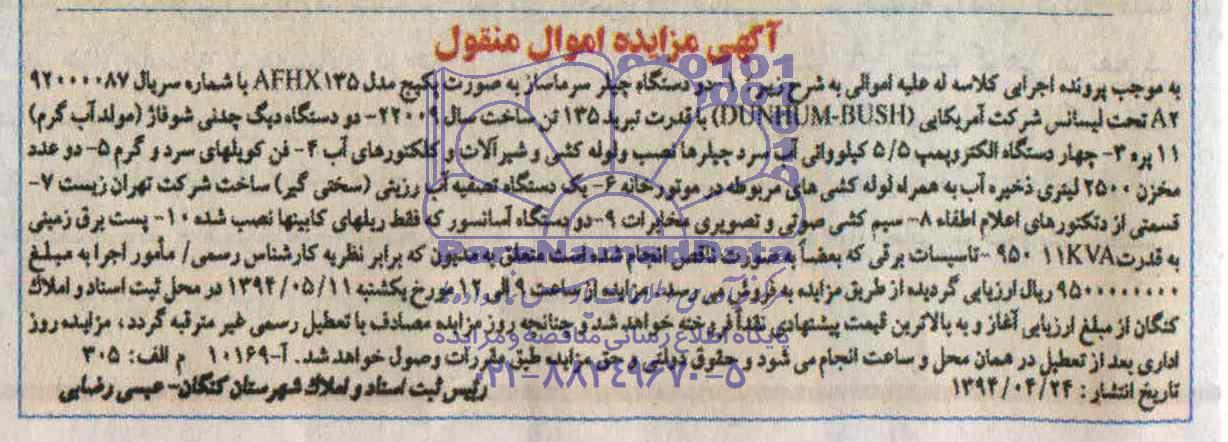 آگهی مزایده اموال منقول
به موجب پرونده اجرایی کلاسه له علیه اموالی به شرح زیر: ۱- دو دستگاه چیلر سرماساز به صورت پکیج مدل AFHX۱۳۵ با شماره سریال ۹۲۰۰۰۰۸۷
A۲ تحت لیسانس شرکت آمریکایی (DUNHUM-BUSH) با قدرت تبرید ۱۳۵ تن ساخت سال ۲۲۰۰۹- دو دستگاه دیگ چدنی شوفاژ (مولد آب گرم)
۱۱ پره ۳- چهار دستگاه الکتروپمپ ۵/۵ کیلوواتی آب سرد چیلرها نصب ولوله کشی و شیرآلات و کلکتورهای آب ۴- فن کویلهای سرد و گرم ۵- دو عدد
مخزن ۲۵۰۰ لیتری ذخیره آب به همراه لوله کشی های مربوطه در موتورخانه ۶- یک دستگاه تصفیه آب رزینی (سختی گیر) ساخت شرکت تهران زیست ۷-
قسمتی از دتکتورهای اعلام اطفاء ۸- سیم کشی صوتی و تصویری مخابرات ۹- دو دستگاه آسانسور که فقط ریلهای کابینها نصب شده ۱۰- پست برق زمینی
به قدرت ۱۱KVA ۹۵۰ -تاسیسات برقی که بعضاً به صورت ناقص انجام شده است متعلق به مدیون که برابر نظریه کارشناس رسمی/ مأمور اجرا به مبلغ
۹۵۰۰۰۰۰۰۰۰ ریال ارزیابی گردیده از طریق مزایده به فروش می رسد. مزایده از ساعت ۹ الی ۱۲ مورخ یکشنبه ۱۳۹۴/۰۵/۱۱ در محل ثبت اسناد و املاک
کنگان از مبلغ ارزیابی آغاز و به بالاترین قیمت پیشنهادی نقداً فروخته خواهد شد و چنانچه روز مزایده مصادف با تعطیل رسمی غیر مترقبه گردد، مزایده روز
اداری بعد از تعطیل در همان محل و ساعت انجام می شود و حقوق دولتی و حق مزایده طبق مقررات وصول خواهد شد. آ-۱۰۱۶۹ م الف: ۳۰۵
تاریخ انتشار: ۱۳۹۴/۰۴/۲۴ رئیس ثبت اسناد و املاک شهرستان کنگان- عیسی رضایی
ParsNamadData
پایگاه اطلاع رسانی مناقصه و مزایده
۰۲۱-۸۸۳۴۹۶۷۰-۵